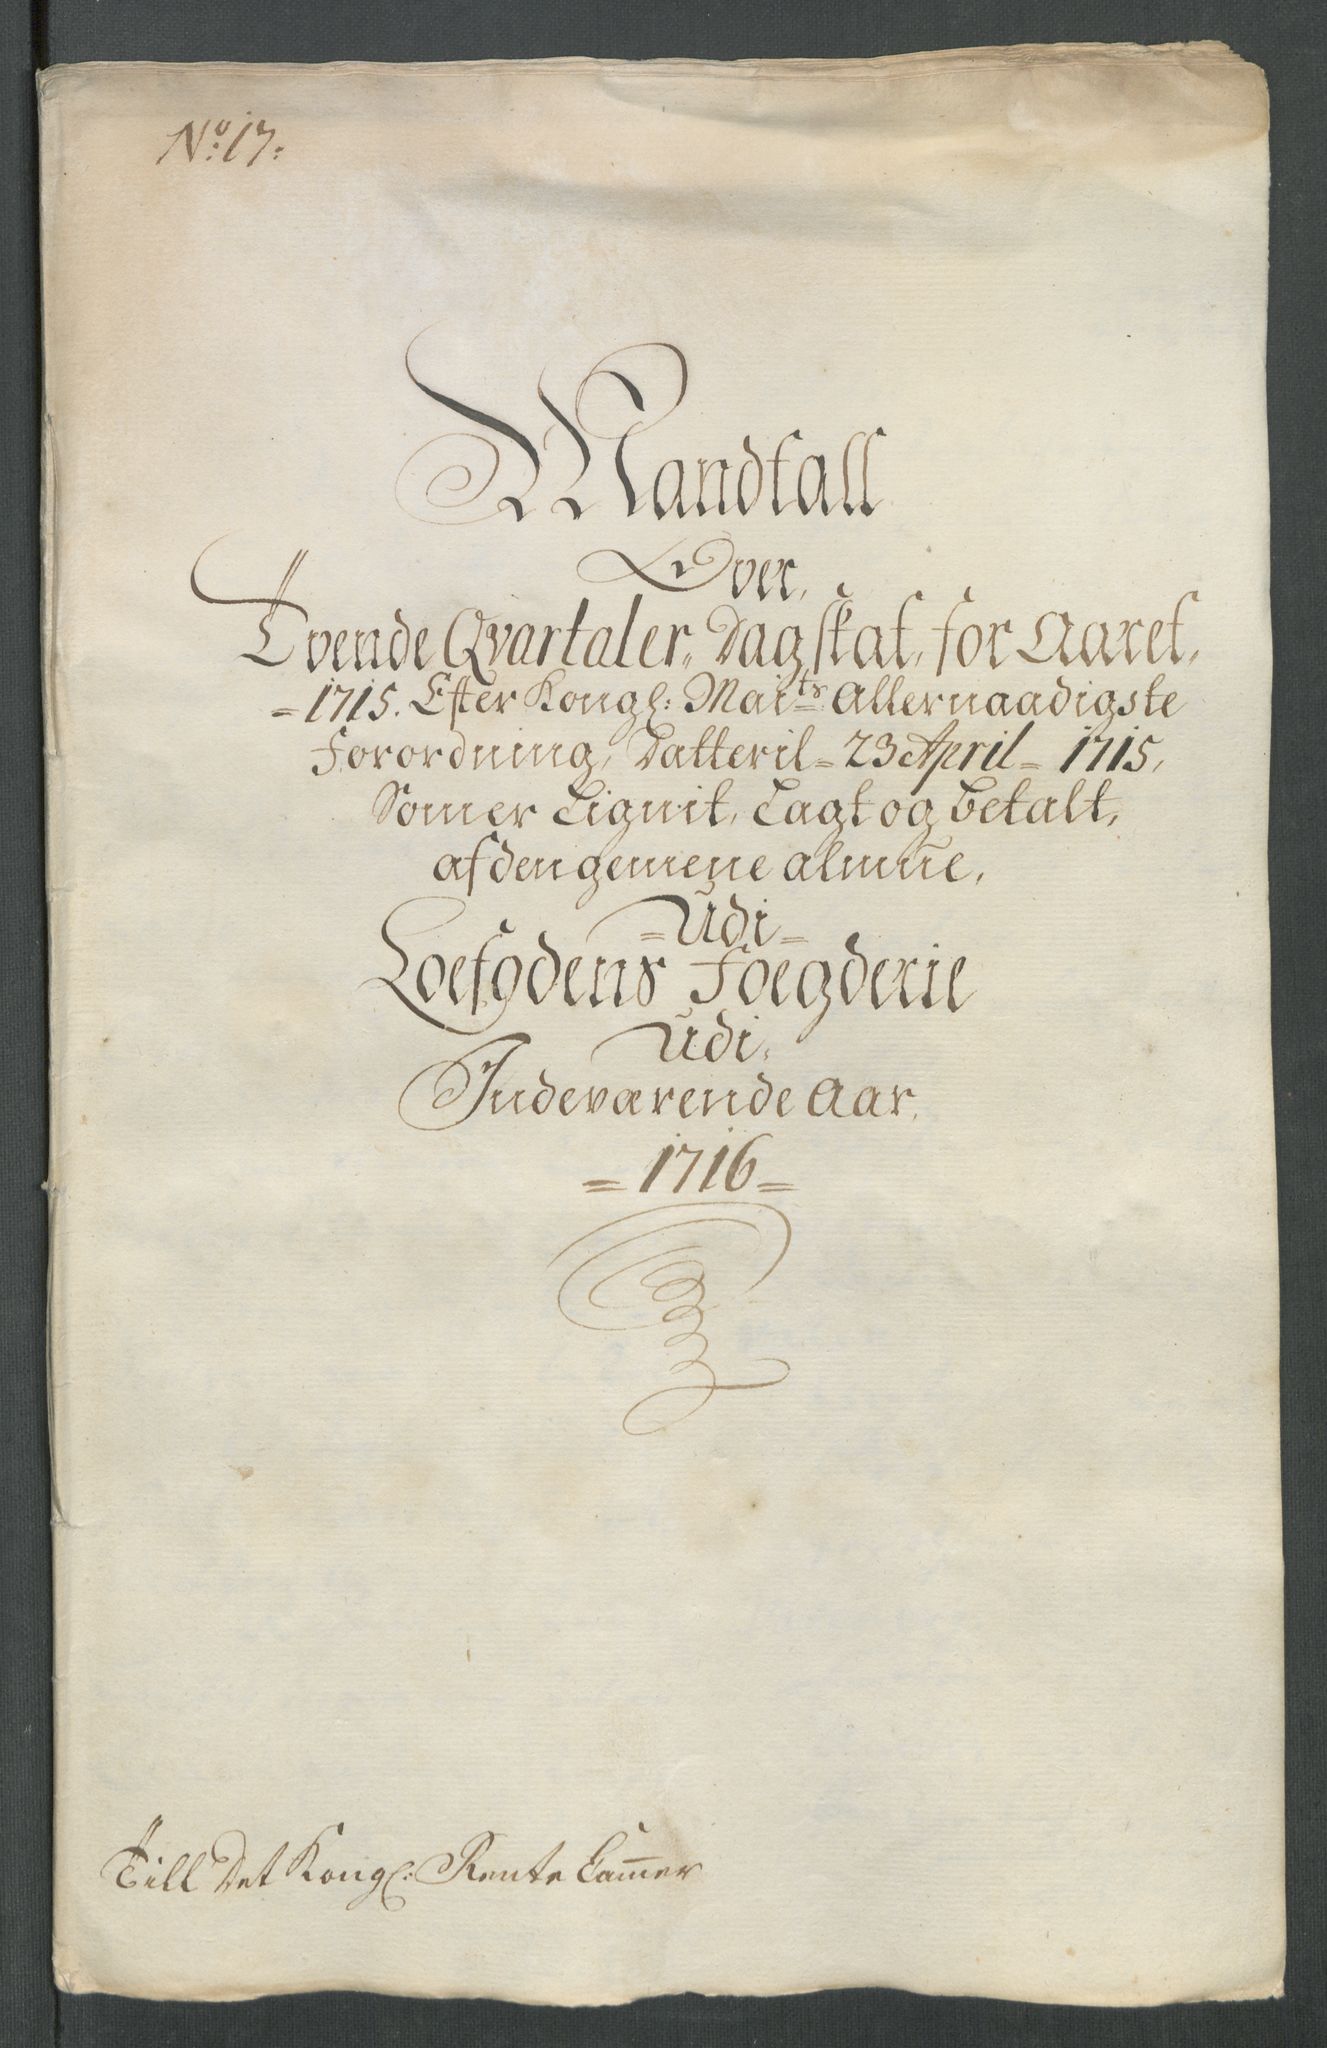 No: 17:
Mandtall
Over,
Tvende Qvartaler, Dagskat, for Aaret,
=1715. Efter Kongl: Maits Allernaadigste
Forordning, Datteril= 23 April= 1715,
Som er Lignit, Lagt og betalt,
af den gemene almue,
=Udi=
Loefodens Foegderie
Udi,
Indeværende Aar,
=1716=
Till Det Kongl: Rente Cammer